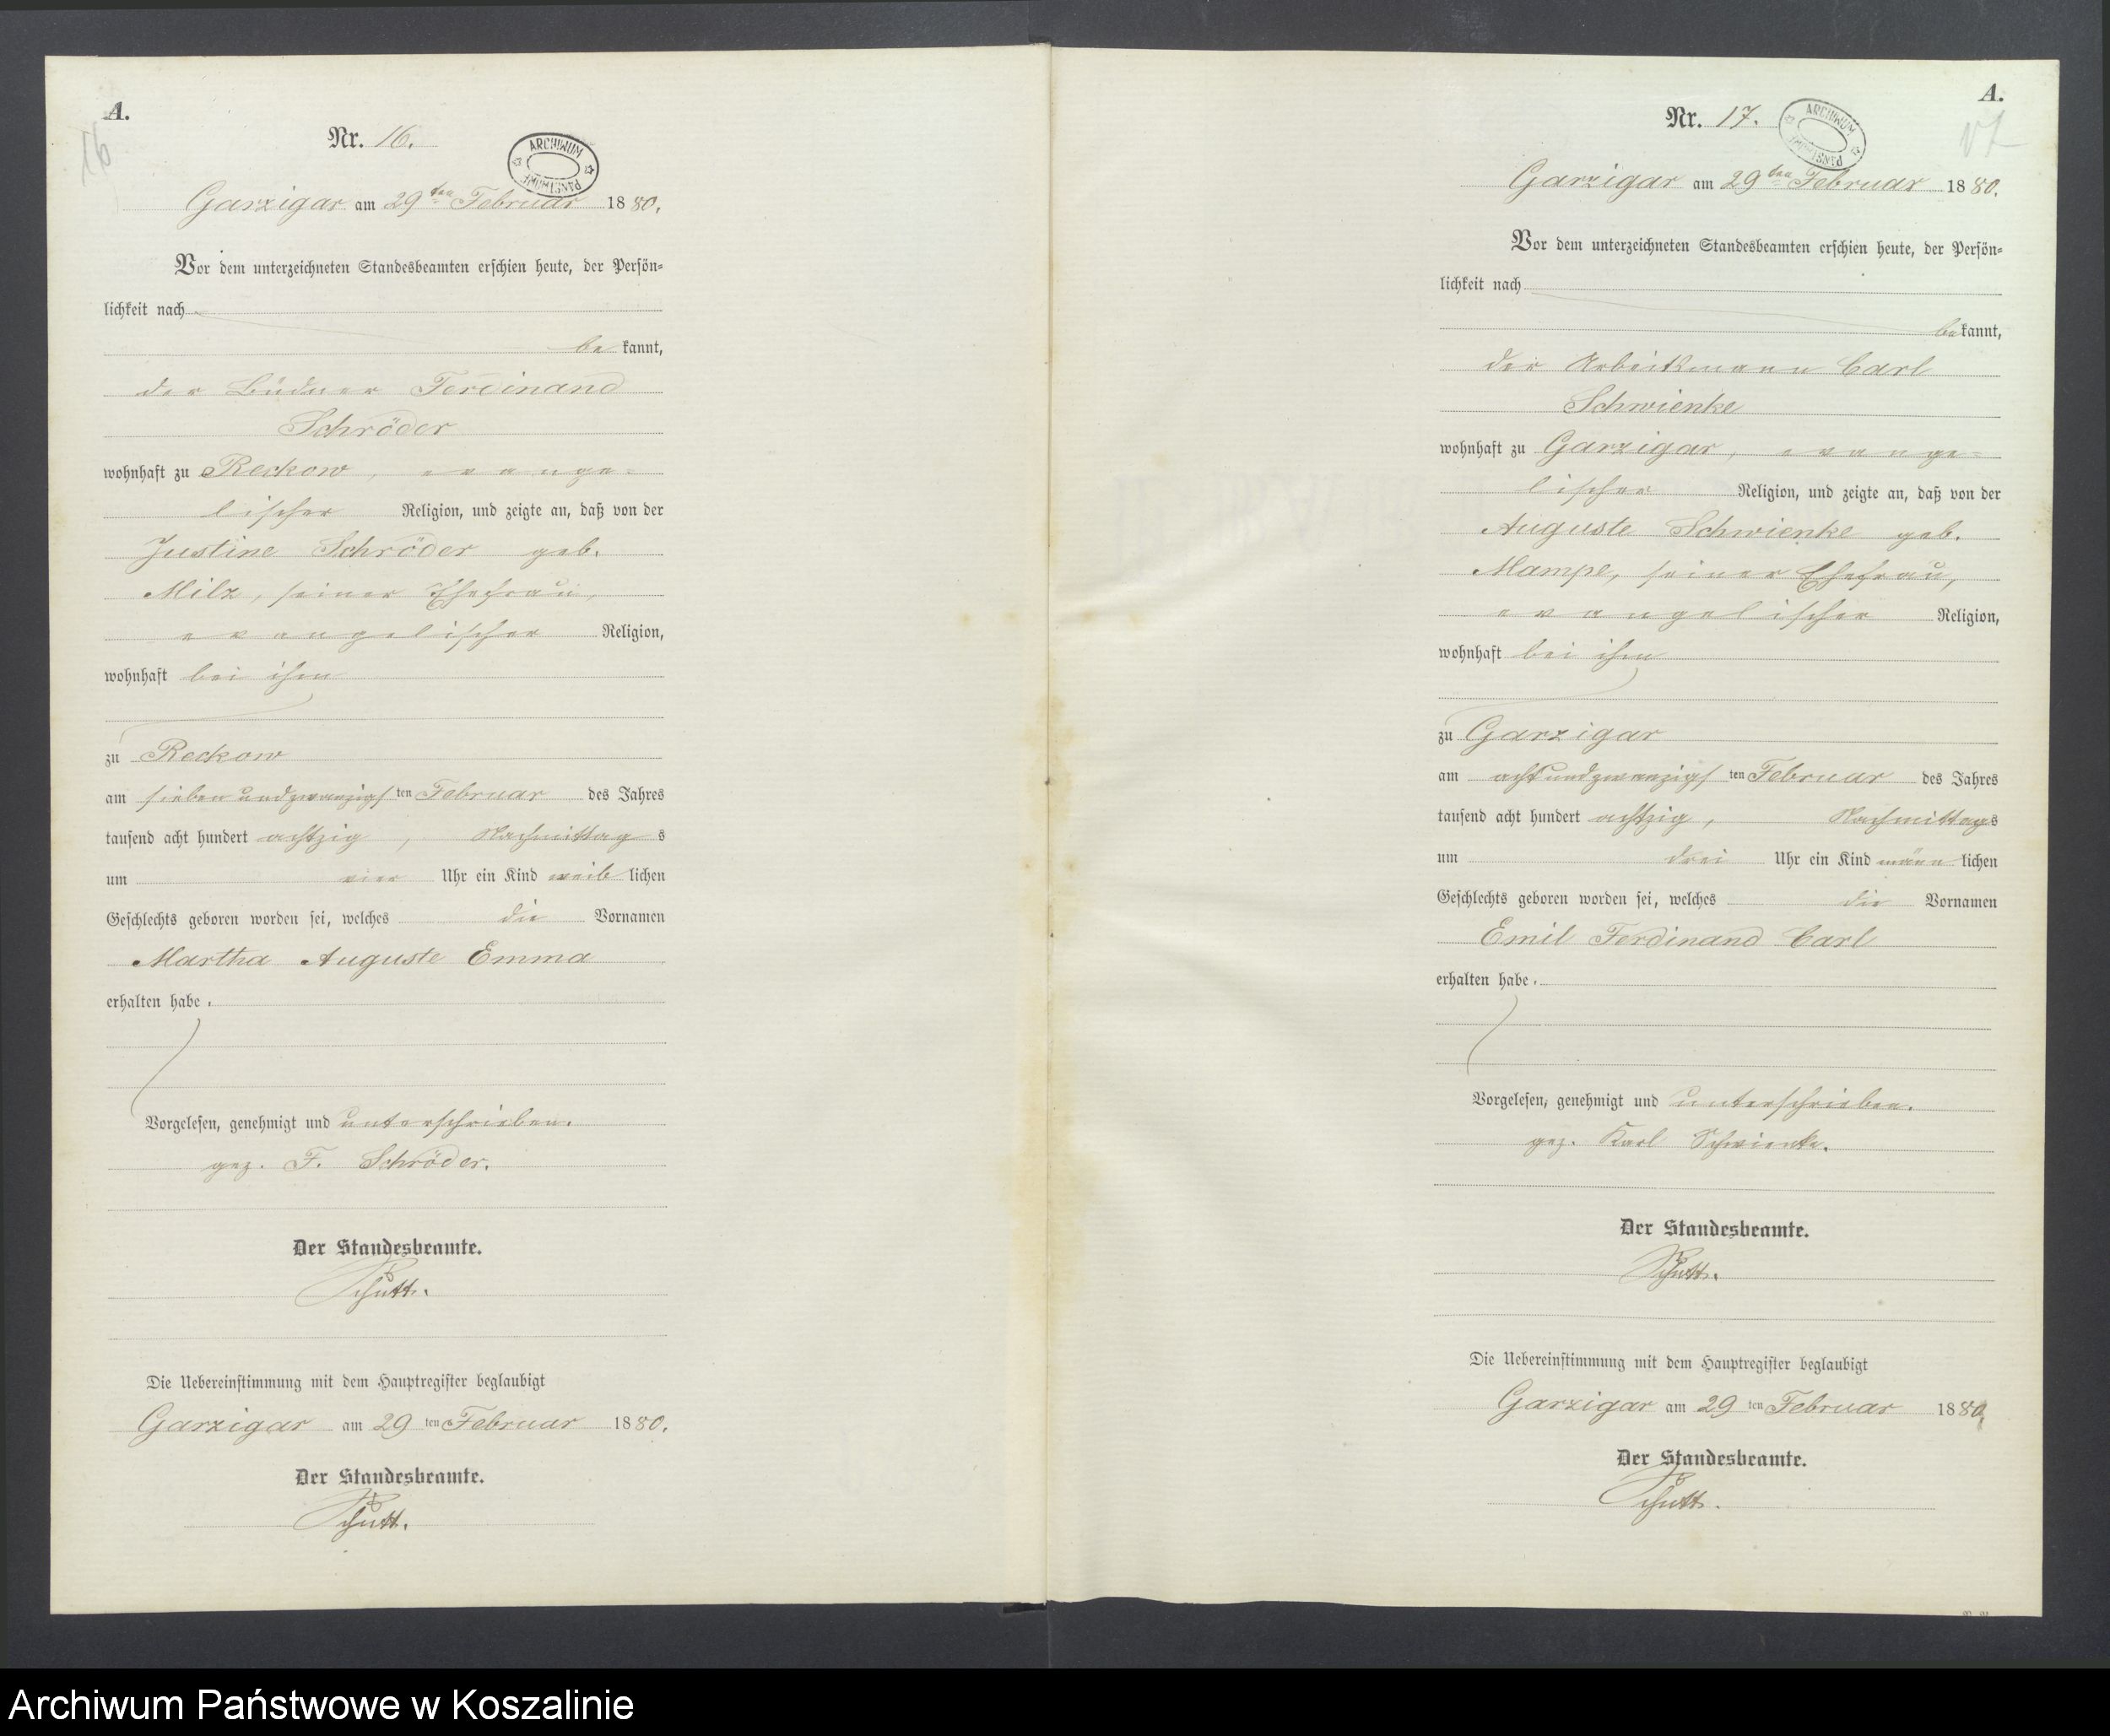 A.
16
Nr. 16.
ARCHIWUM PAŃSTWOWE
Garzigar am 29ten Februar 1880.
Vor dem unterzeichneten Standesbeamten erschien heute, der Persön-
lichkeit nach
be kannt,
der Büdner Ferdinand
Schröder
wohnhaft zu Reckow, evange-
lischer Religion, und zeigte an, daß von der
Justine Schröder geb.
Milz, seiner Ehefrau,
evangelischer Religion,
wohnhaft bei ihm
zu Reckow
am siebenundzwanzigsten Februar des Jahres
tausend acht hundert achtzig, Nachmittag s
um vier Uhr ein Kind weib lichen
Geschlechts geboren worden sei, welches die Vornamen
Martha Auguste Emma
erhalten habe.
Vorgelesen, genehmigt und unterschrieben.
gez. F. Schröder.
Der Standesbeamte.
Schutt.
Die Uebereinstimmung mit dem Hauptregister beglaubigt
Garzigar am 29 ten Februar 1880.
Der Standesbeamte.
Schutt.
A.
17
Nr. 17.
ARCHIWUM PAŃSTWOWE
Garzigar am 29ten Februar 1880.
Vor dem unterzeichneten Standesbeamten erschien heute, der Persön-
lichkeit nach
bekannt,
der Arbeitsmann Carl
Schwienke
wohnhaft zu Garzigar, evange-
lischer Religion, und zeigte an, daß von der
Auguste Schwienke geb.
Mampe, seiner Ehefrau,
evangelischer Religion,
wohnhaft bei ihm
zu Garzigar
am achtundzwanzigsten Februar des Jahres
tausend acht hundert achtzig, Nachmittags
um drei Uhr ein Kind männ lichen
Geschlechts geboren worden sei, welches die Vornamen
Emil Ferdinand Carl
erhalten habe.
Vorgelesen, genehmigt und unterschrieben.
gez. Karl Schwienke.
Der Standesbeamte.
Schutt.
Die Uebereinstimmung mit dem Hauptregister beglaubigt
Garzigar am 29 ten Februar 1880.
Der Standesbeamte.
Schutt.
Archiwum Państwowe w Koszalinie